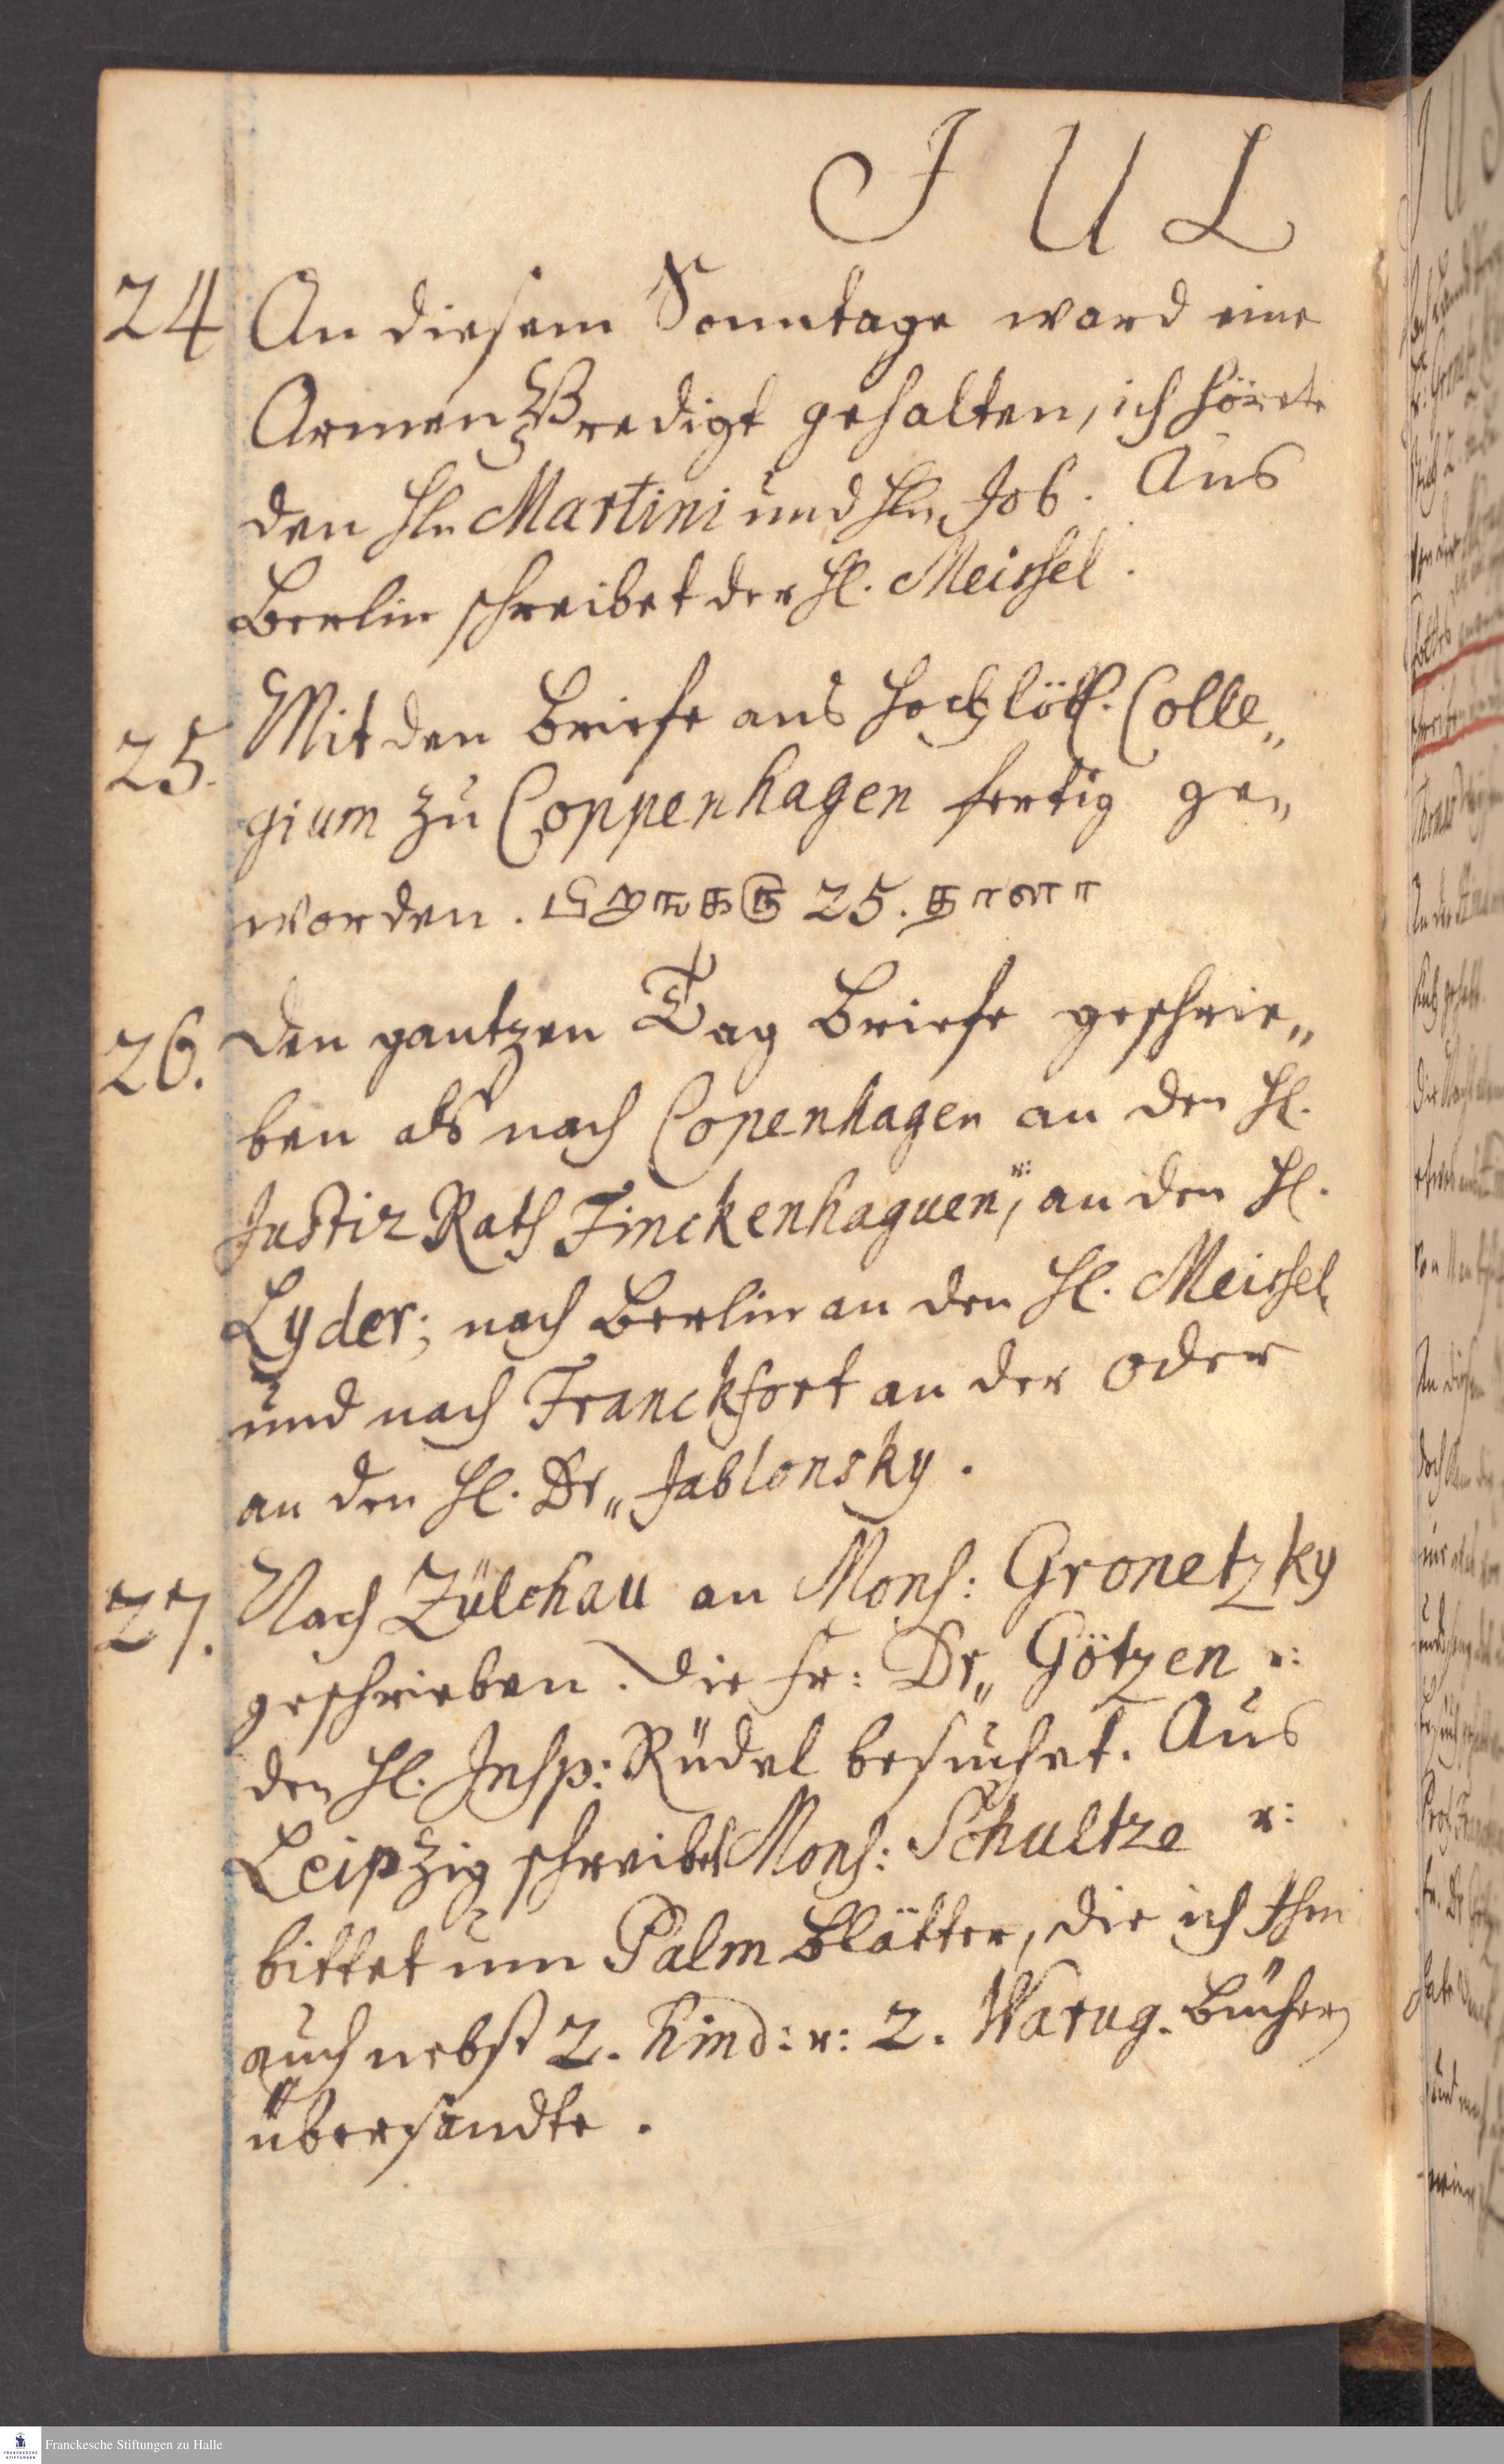 J U L
24 An diesem Sonntage ward eine
Armen Predigt gehalten, ich hörete
den Hln Martini und Hln Job. Aus
Berlin schreibet der Hl. Meissel.
25. Mit den Briefe ans Hochlöbl. Colle„
gium zu Coppenhagen fertig ge„
worden. 25.
26. den gantzen Tag Briefe geschrie„
ben als nach Copenhagen an den Hl.
Justiz Rath Finckenhaguen, u: an den Hl.
Lyder; nach Berlin an den Hl. Meissel,
und nach Franckfort an der Oder
an den Hl. Dr„ Jablonsky.
27. Nach Zülchau an Mons: Gronetzky
geschrieben. die Fr: Dr„ Götzen u:
den Hl. Insp: Rüdel besuchet. Aus
Leipzig schreibet Mons: Schultze u:
bittet um Palm Blätter, die ich Ihm
auch nebst 2. hind: u: 2. Warug. Bücher
übersandte.
Franckesche Stiftungen zu Halle